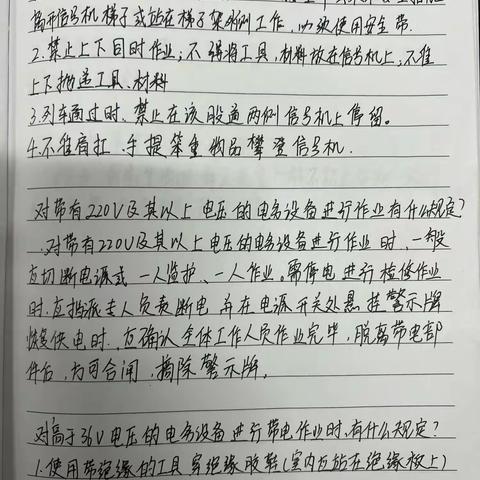 离开信号机梯子或站在梯子架外侧工作,必须使用安全带.
2.禁止上下同时作业;不得将工具,材料放在信号机上,不准
上下抛递工具、材料
3.列车通过时、禁止在该股道两侧信号机上停留。
4.不准肩扛、手提笨重物品攀登信号机.
对带有220V及其以上电压的电务设备进行作业有什么规定?
.对带有220V及其以上电压的电务设备进行作业时、一般
应切断电源或一人监护、一人作业。需停电进行检修作业
时.应指派专人负责断电并在电源开关处悬挂警示牌
恢复供电时.应确认全体工作人员作业完毕,脱离带电部
件后,方可合闸,摘除警示牌。
对高于36V电压的电务设备进行带电作业时,有什么规定?
1.使用带绝缘的工具穿绝缘胶鞋(室内应站在绝缘板上)